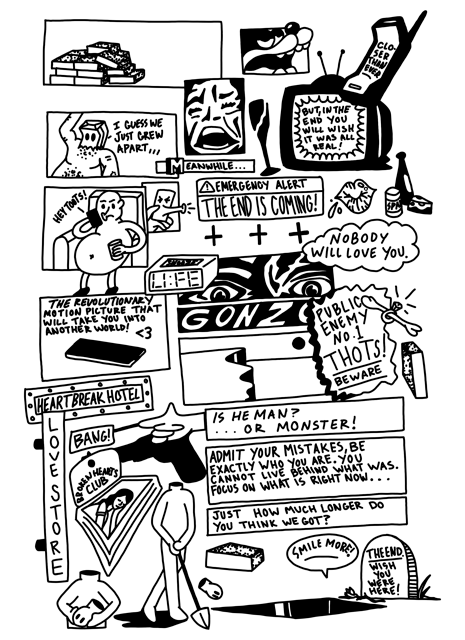 CLO-
SER
THAN
EVER
BUT, IN THE
END YOU
WILL WISH
IT WAS ALL
REAL!
I GUESS WE
JUST GREW
APART,...
MEANWHILE...
HEY TOOTS!
⚠EMERGENCY ALERT
THE END IS COMING!
+ + +
NOBODY
WILL LOVE YOU.
LIFE
THE REVOLUTIONARY
MOTION PICTURE THAT
WILL TAKE YOU INTO
ANOTHER WORLD!
<3
GONZO
PUBLIC
ENEMY
NO.1
THOTS!
BEWARE
HEARTBREAK HOTEL
LOVE STORE
BANG!
BROKEN HEARTS
CLUB
IS HE MAN?
...OR MONSTER!
ADMIT YOUR MISTAKES, BE
EXACTLY WHO YOU ARE. YOU
CANNOT LIVE BEHIND WHAT WAS.
FOCUS ON WHAT IS RIGHT NOW...
JUST HOW MUCH LONGER DO
YOU THINK WE GOT?
SMILE MORE!
THE END.
WISH
YOU
WERE
HERE!